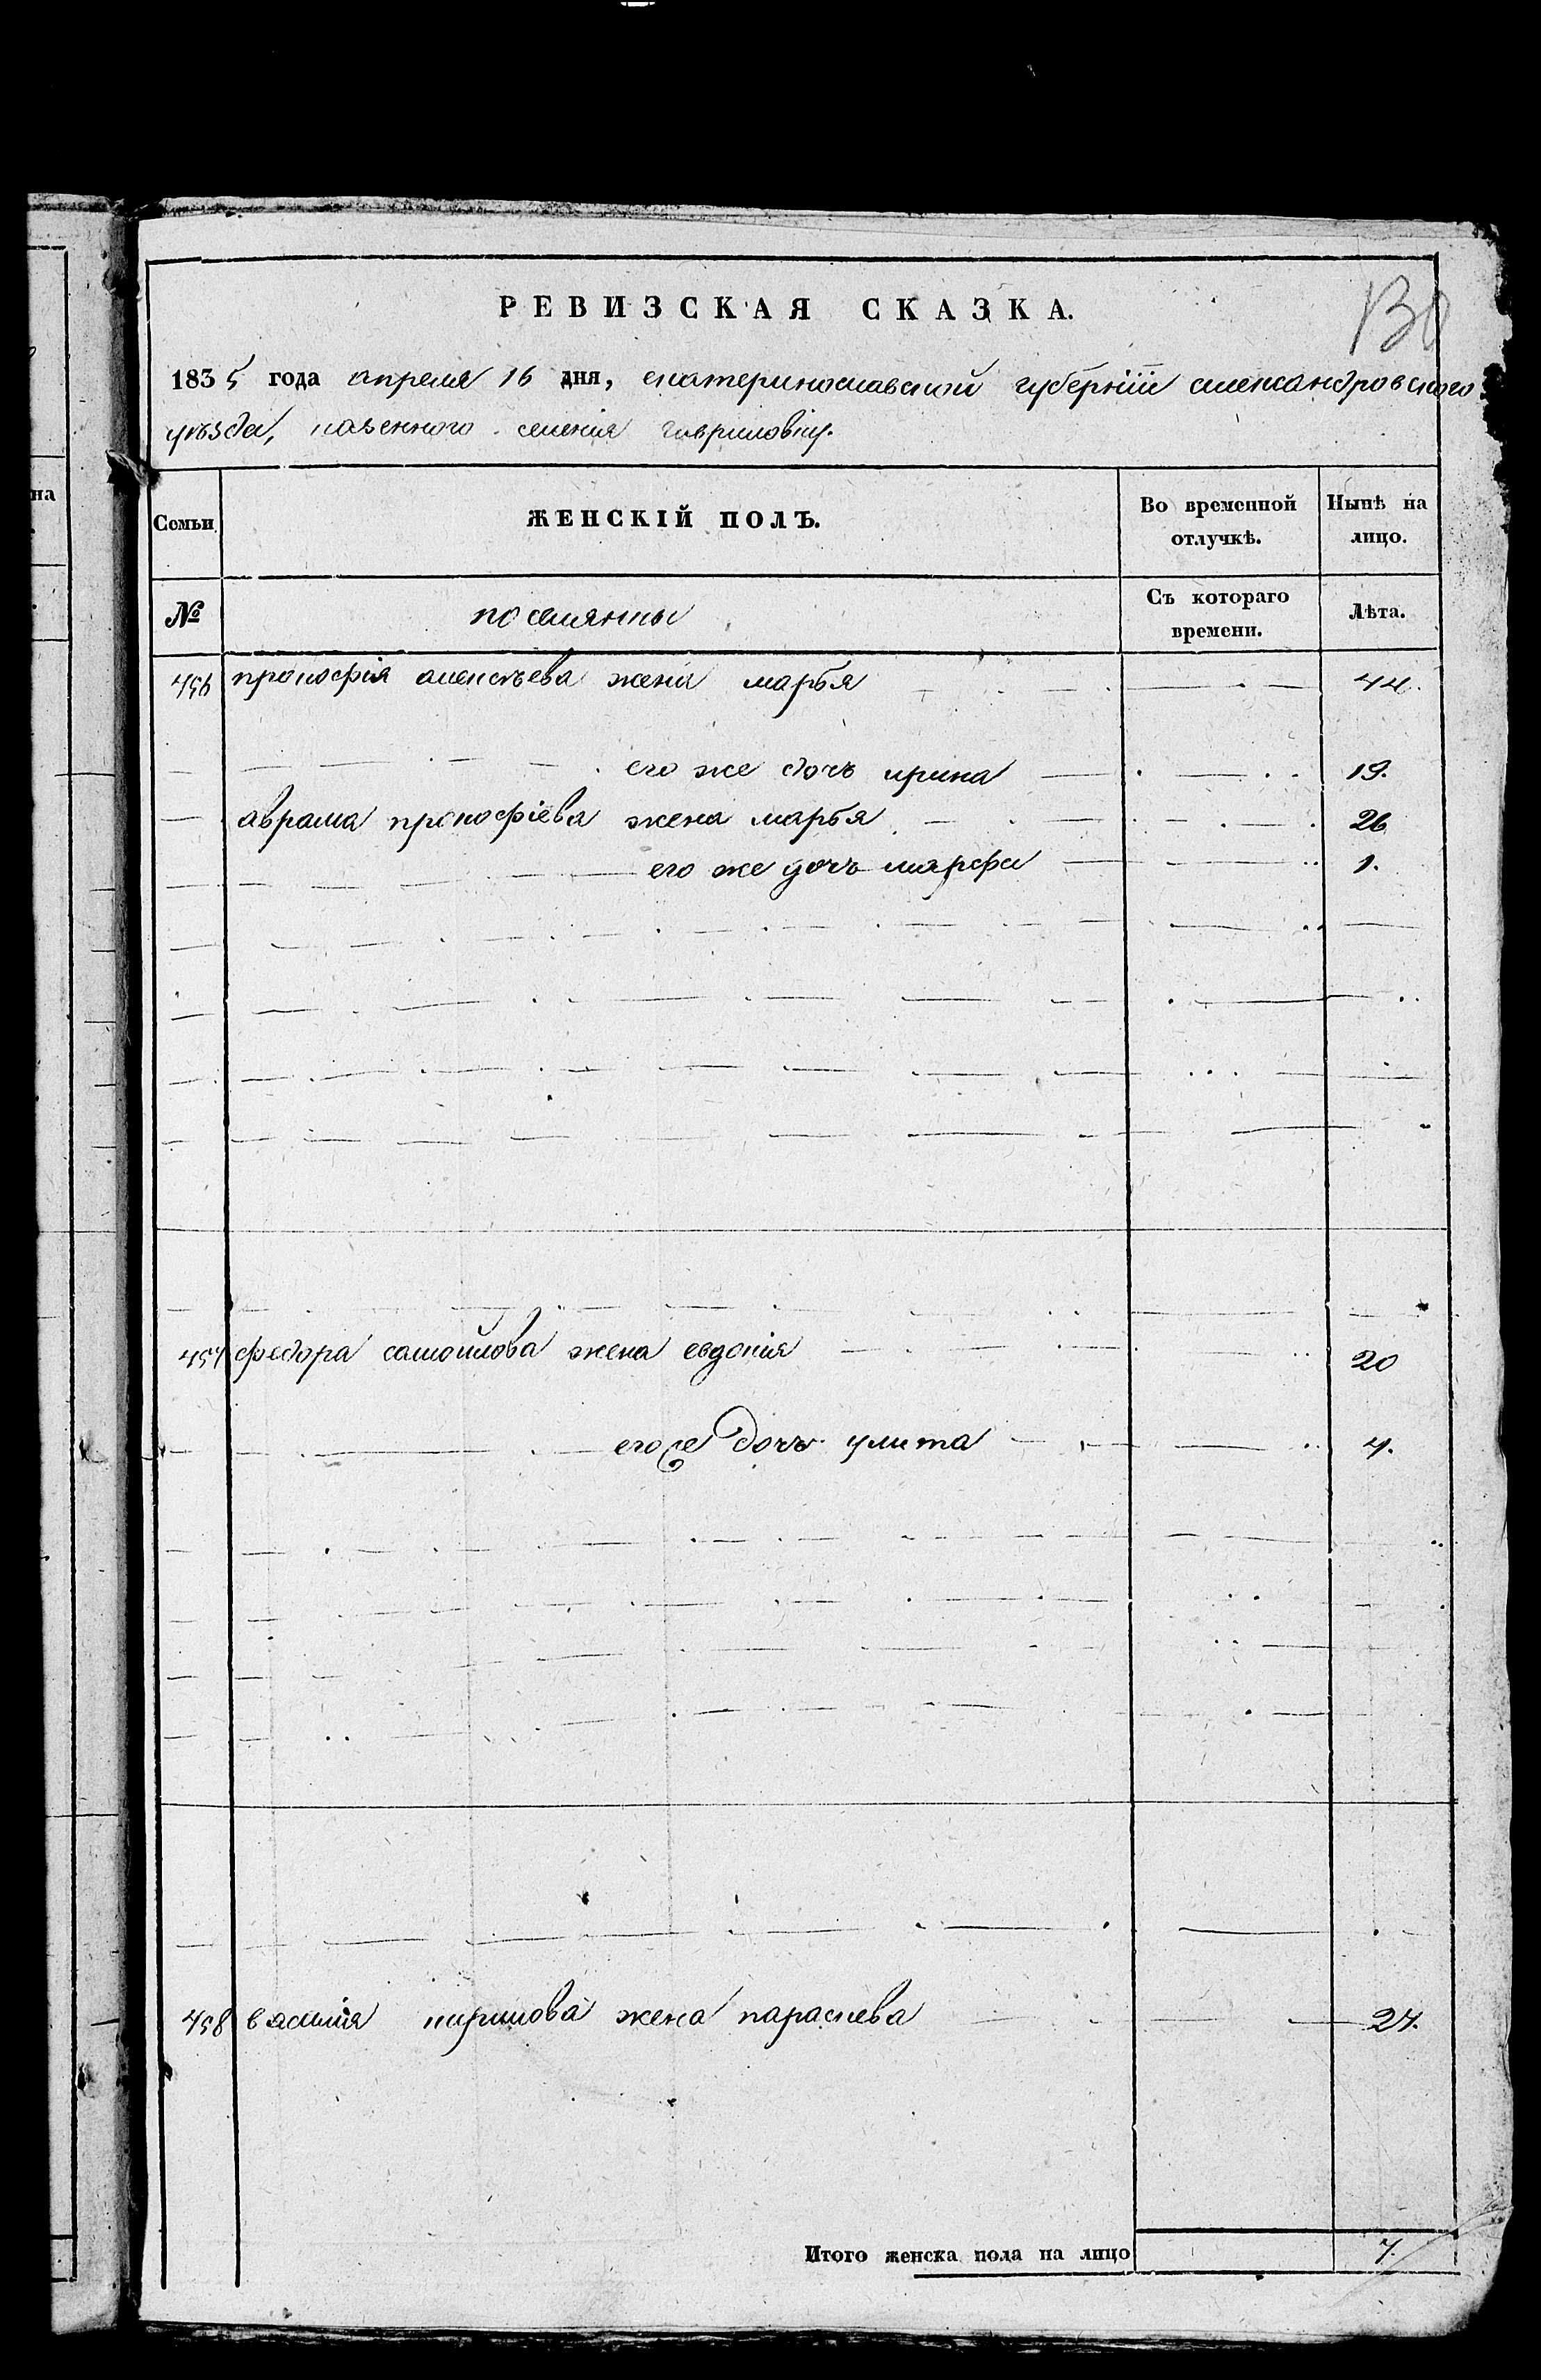 130
РЕВИЗСКАЯ СКАЗКА.
1835 года апреля 16 дня, екатеринославской губернїи александровского
уѣзда, казенного селенія гавриловки.
Семьи
ЖЕНСКІЙ ПОЛЪ.
Во временной отлучкѣ.
Нынѣ на лицо.
№
поселянны
Съ котораго времени.
Лѣта.
456 прокофія алексѣева жена марья 44.
его же дочь ирина 19.
аврама прокофіева жена марья 26
его же дочь марфа 1.
457 федора самойлова жена евдокія 20
его же дочь улита 4.
458 василія кирилова жена параскева 27.
Итого женска пола на лицо 7.
на